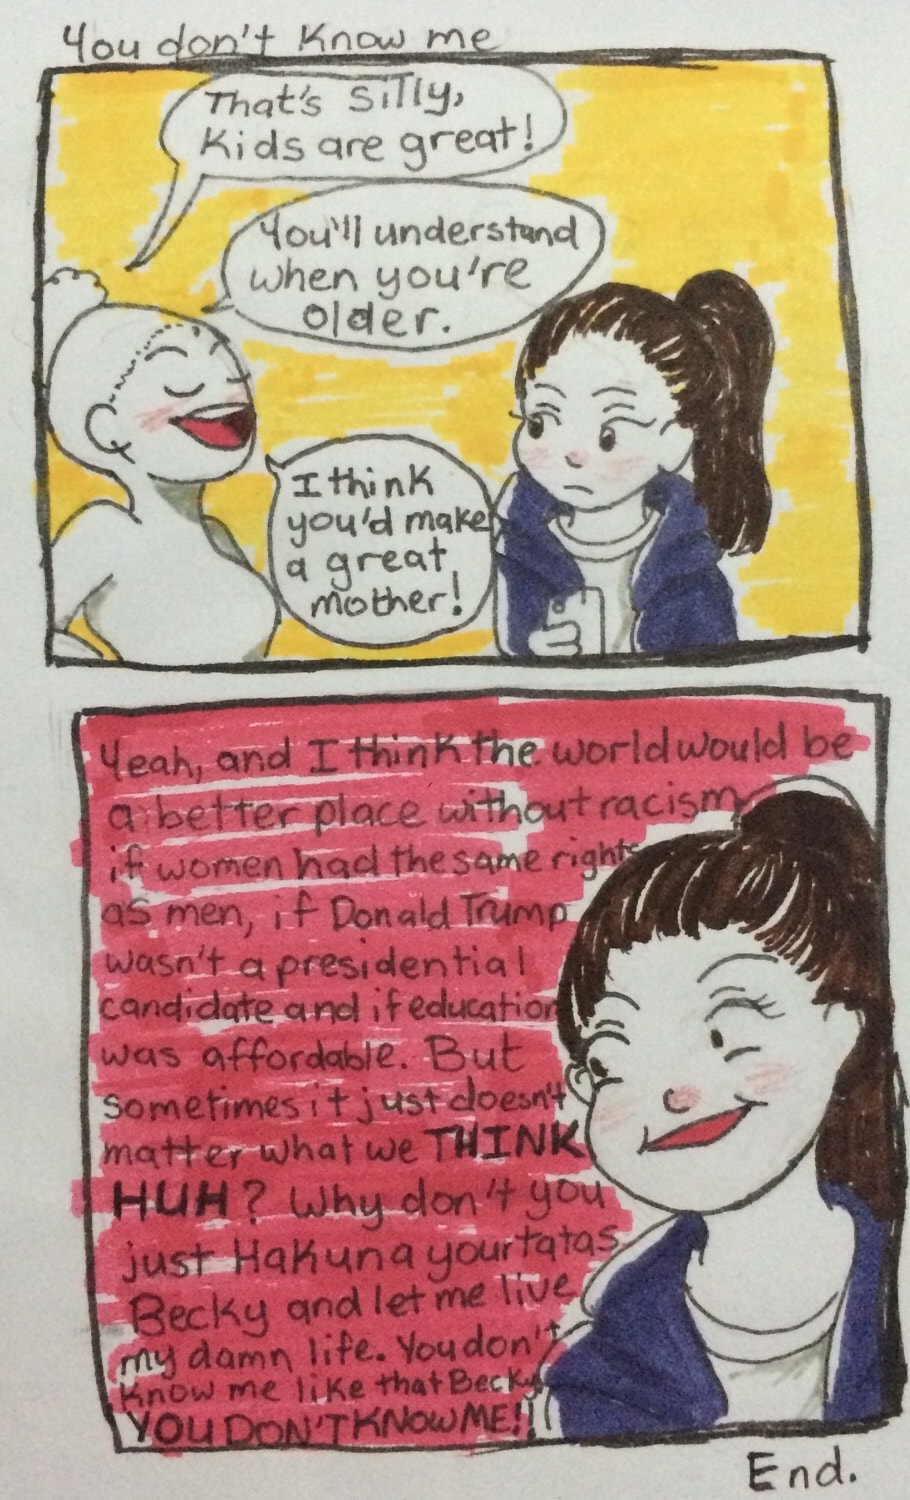 You don't Know me
That's silly,
Kids are great!
You'll understand
when you're
older.
I think
you'd make
a great
mother!
Yeah, and I think the world would be
a better place without racism
if women had the same rights
as men, if Donald Trump
wasn't a presidential
candidate and if education
was affordable. But
sometimes it just doesn't
matter what we THINK
HUH? Why don't you
just Hakuna your tatas
Becky and let me live
my damn life. You don't
know me like that Becky
YOU DON'T KNOW ME!!
End.